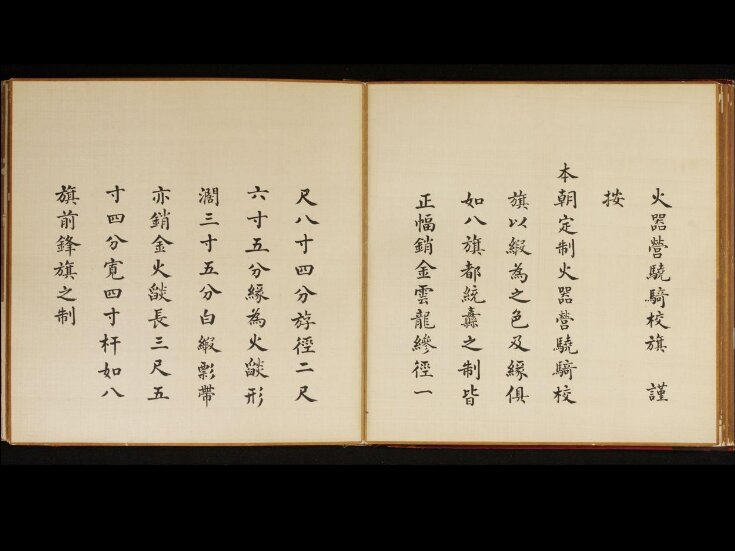 火器營驍騎校旗 謹
按
本朝定制火器營驍騎校
旗以緞為之色及緣俱
如八旗都統纛之制皆
正幅銷金雲龍縿徑一
尺八寸四分斿徑二尺
六寸五分緣為火燄形
濶三寸五分白緞髟帶
亦銷金火燄長三尺五
寸四分寛四寸杆如八
旗前鋒旗之制